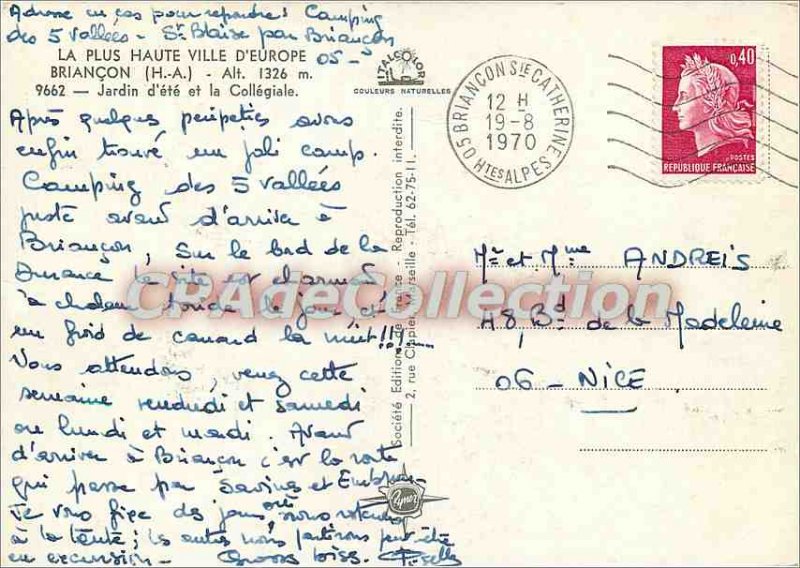 Adresse en cas pour repondre : Camping
des 5 Vallées - St Blaise par Briançon
05 -
LA PLUS HAUTE VILLE D'EUROPE
BRIANÇON (H.-A.) - Alt. 1326 m.
9662 — Jardin d'été et la Collégiale.
ITALCOLOR
COULEURS NATURELLES
Après quelques peripeties avons
enfin trouvé un joli camp.
Camping des 5 Vallées
juste avant d'arriver à
Briançon, sur le bord de la
Durance le site est charmant
à chaleur le jour et
un froid de canard la nuit !!!
Vous attendons, venez cette
semaine vendredi et samedi
ou lundi et mardi. Avant
d'arriver à Briançon c'est la route
qui passe par Savines et Embrun -
Je vous fixe des jours où nous
à la tente ; les autres nous partirons peut-être
en excursion - Grosses biss.
Société Edition de France - Reproduction interdite.
2, rue Clapier, Marseille - Tél. 62-75-11.
05 BRIANÇON STE CATHERINE
12 H
19-8
1970
HTES ALPES
0,40
POSTES
REPUBLIQUE FRANÇAISE
Mr et Mme ANDREIS
48, Bd de la Madeleine
06 - NICE
CPAdeCollection